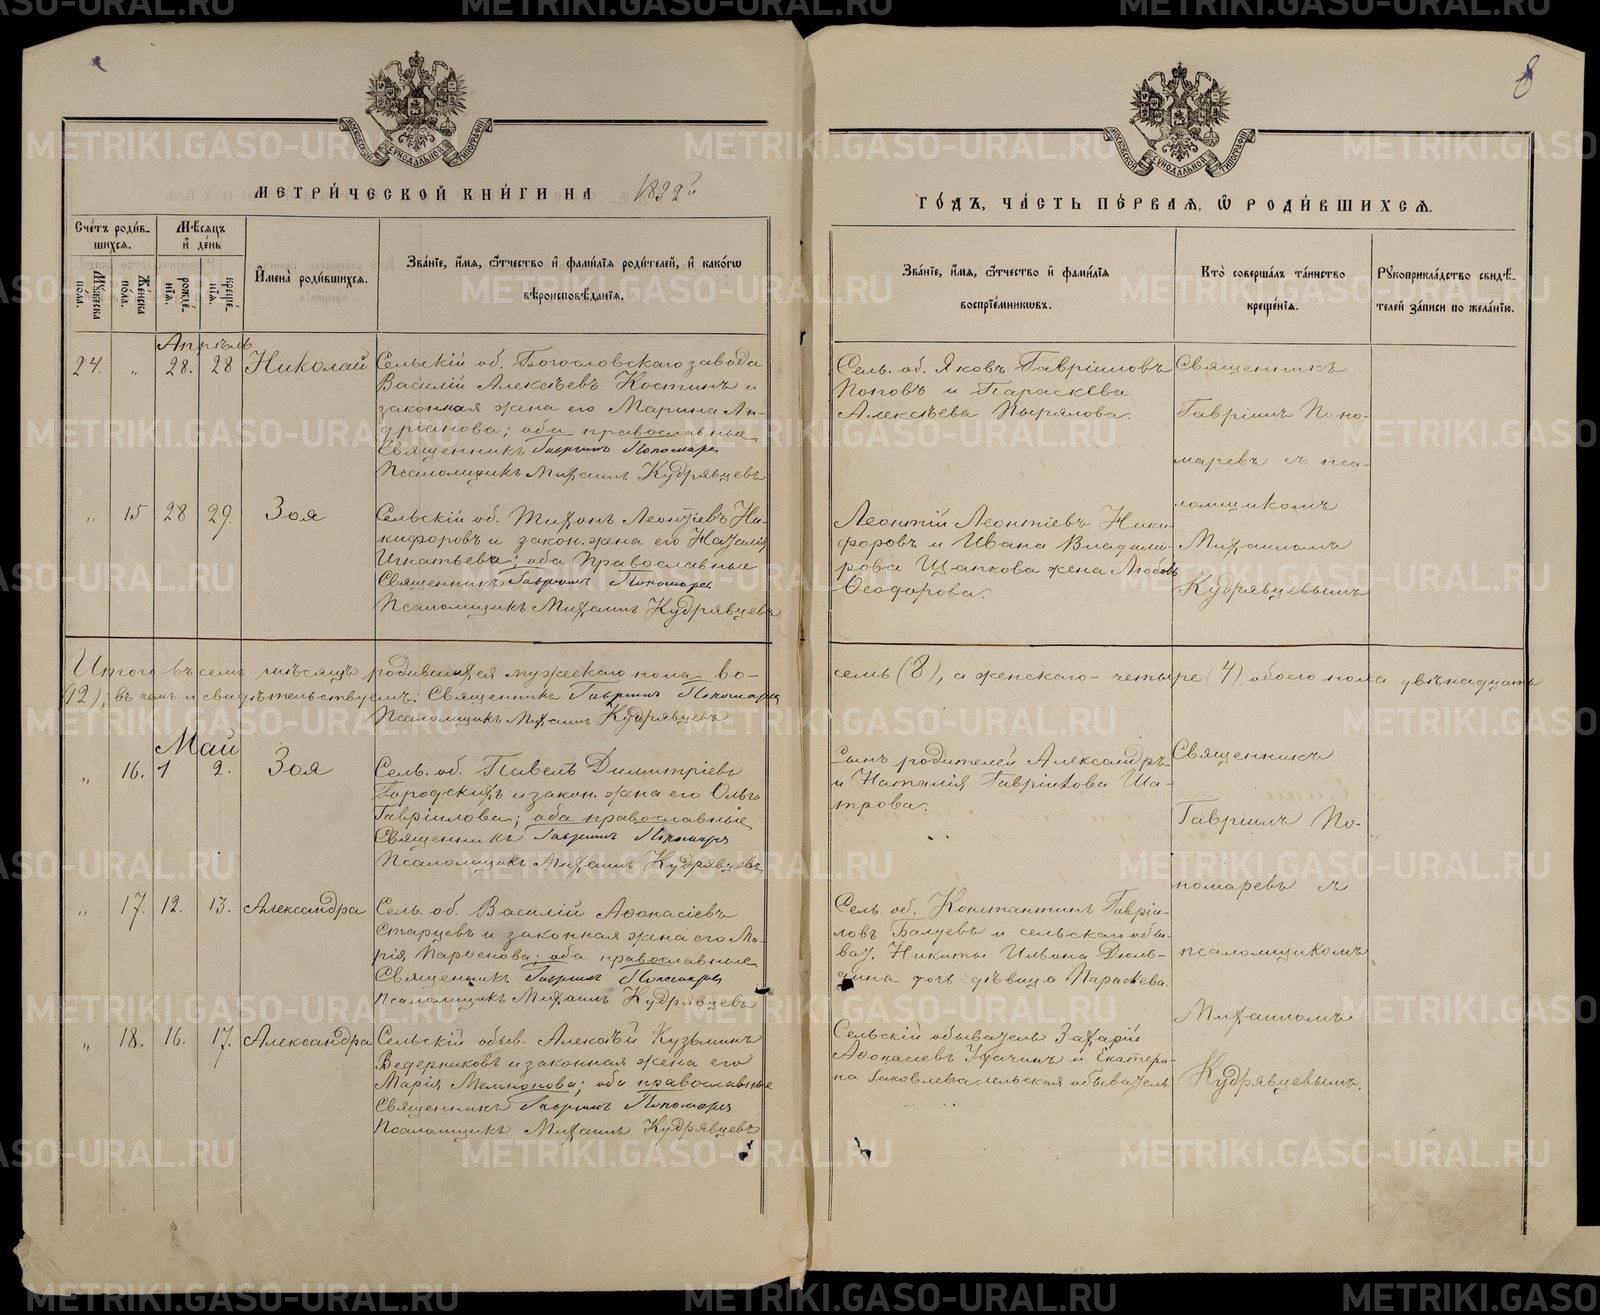 8
МЕТРИ́ЧЕСКОЙ КНИ́ГИ НА 1892й
ГО́ДЪ, ЧА́СТЬ ПЕ́РВАЯ, Ѽ РОДИ́ВШИХСЯ.
Сче́тъ роди́в-
шихся.
Мѣ́сяцъ
и де́нь
Му́жеска по́ла.
Же́нска по́ла.
рожде́нїя.
креще́нїя.
И҆мена̀ роди́вшихся.
Зва́нїе, и҆́мя, ѻ҆́тчество и҆ фами́лїя роди́телей, и҆ како́гѡ
вѣроисповѣ́данїя.
Зва́нїе, и҆́мя, ѻ҆́тчество и҆ фами́лїя
воспрїе́мникѡвъ.
Кто̀ соверша́лъ та́инство
креще́нїя.
Рꙋкоприкла́дство свидѣ́-
телей за́писи по жела́нїю.
Апрѣль
24. „ 28. 28 Николай
Сельскій об. Богословскаго завода
Василій Алексѣевъ Костинъ и
законная жена его Марина Ан-
дріанова; оба православные
Священникъ Гавріилъ Пономаревъ
Псаломщикъ Михаилъ Кудрявцевъ
Сель. об. Яковъ Гавріиловъ
Поповъ и Параскева
Алексѣева Пырялова.
Священникъ
Гавріилъ Поно-
маревъ съ пса-
ломщикомъ
Михаиломъ
Кудрявцевымъ
„ 15 28 29. Зоя
Сельскій об. Тихонъ Леонтіевъ Ни-
кифоровъ и закон. жена его Наталія
Игнатьева; оба Православные
Священникъ Гавріилъ Пономаревъ
Псаломщикъ Михаилъ Кудрявцевъ
Леонтій Леонтіевъ Ники-
форовъ и Ивана Владими-
рова Цапкова жена Любовь
Ѳеодорова.
Итого въ семъ мѣсяцѣ родившихся мужескаго пола во-
семь (8), а женскаго - четыре (4), обоего пола двѣнадцать
(12); въ чемъ и свидѣтельствуемъ: Священникъ Гавріилъ Пономаревъ
Псаломщикъ Михаилъ Кудрявцевъ
Май
„ 16. 1 2. Зоя
Сель. об. Павелъ Димитріевъ
Городскихъ и закон. жена его Ольга
Гавріилова; оба православные
Священникъ Гавріилъ Пономаревъ
Псаломщикъ Михаилъ Кудрявцевъ
Сынъ родителей Александръ
и Наталія Гавріилова Ша-
трова.
Священникъ
Гавріилъ По-
номаревъ съ
псаломщикомъ
Михаиломъ
Кудрявцевымъ.
„ 17. 12. 13. Александра
Сель. об. Василій Аѳонасіевъ
Старцевъ и законная жена его Ма-
рія; оба православные
Священникъ Гавріилъ Пономаревъ
Псаломщикъ Михаилъ Кудрявцевъ
Сель. об. Константинъ Гавріи-
ловъ Балуевъ и сельскаго обы-
ват. Никиты Ильина Дюль-
дина дочь дѣвица Параскева.
„ 18. 16. 17. Александра
Сельскій обыв. Алексѣй Кузьминъ
Ведерниковъ и законная жена его
Марія; оба православные
Священникъ Гавріилъ Пономаревъ
Псаломщикъ Михаилъ Кудрявцевъ
Сельскій обыватель Захарій
Аѳонасіевъ и Екатери-
на Іаковлева сельская обыватель
METRIKI.GASO-URAL.RU